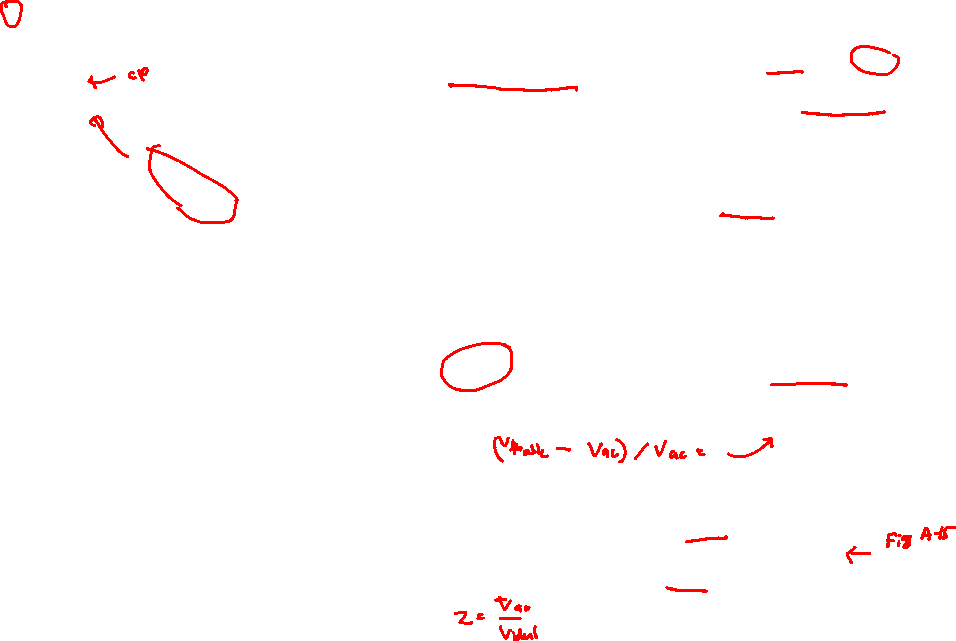 ← CP
(Videal - Vac) / Vac =
← Fig A-15
Z = Vac / Videal